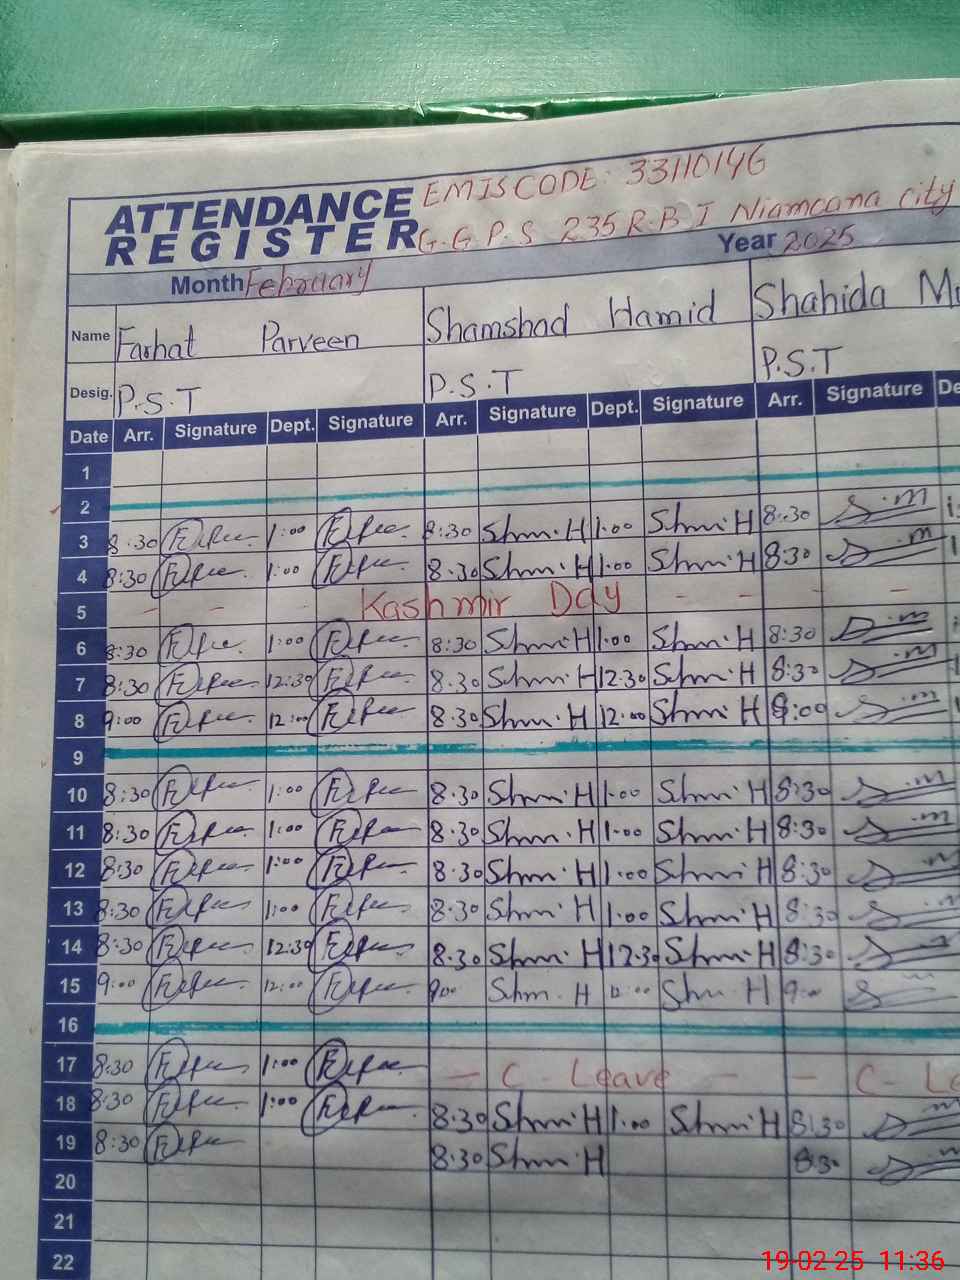 ATTENDANCE EMISCODE: 33110146
REGISTER G.G.P.S 235 R.B I Niamoana city
Month February Year 2025
Name Farhat Parveen Shamshad Hamid Shahida
Desig. P.S.T P.S.T P.S.T
Date Arr. Signature Dept. Signature Arr. Signature Dept. Signature Arr. Signature
1
2
3 8:30 1:00 8:30 Shm.H 1:00 Shm.H 8:30 S.m
4 8:30 1:00 8:30 Shm.H 1:00 Shm.H 8:30 S.m
5 - - - Kashmir Day - - - -
6 8:30 1:00 8:30 Shm.H 1:00 Shm.H 8:30 S.m
7 8:30 12:30 8:30 Shm.H 12:30 Shm.H 8:30 S.m
8 9:00 12:00 8:30 Shm.H 12:00 Shm.H 9:00 S.m
9
10 8:30 1:00 8:30 Shm.H 1:00 Shm.H 8:30 S.m
11 8:30 1:00 8:30 Shm.H 1:00 Shm.H 8:30 S.m
12 8:30 1:00 8:30 Shm.H 1:00 Shm.H 8:30 S.m
13 8:30 1:00 8:30 Shm.H 1:00 Shm.H 8:30 S.m
14 8:30 12:30 8:30 Shm.H 12:30 Shm.H 8:30 S.m
15 9:00 12:00 9:00 Shm.H 12:00 Shm.H 9:00 S
16
17 8:30 1:00 - C - Leave - - C -
18 8:30 1:00 8:30 Shm.H 1:00 Shm.H 8:30 S.m
19 8:30 8:30 Shm.H 8:30 S.m
20
21
22
19-02-25 11:36